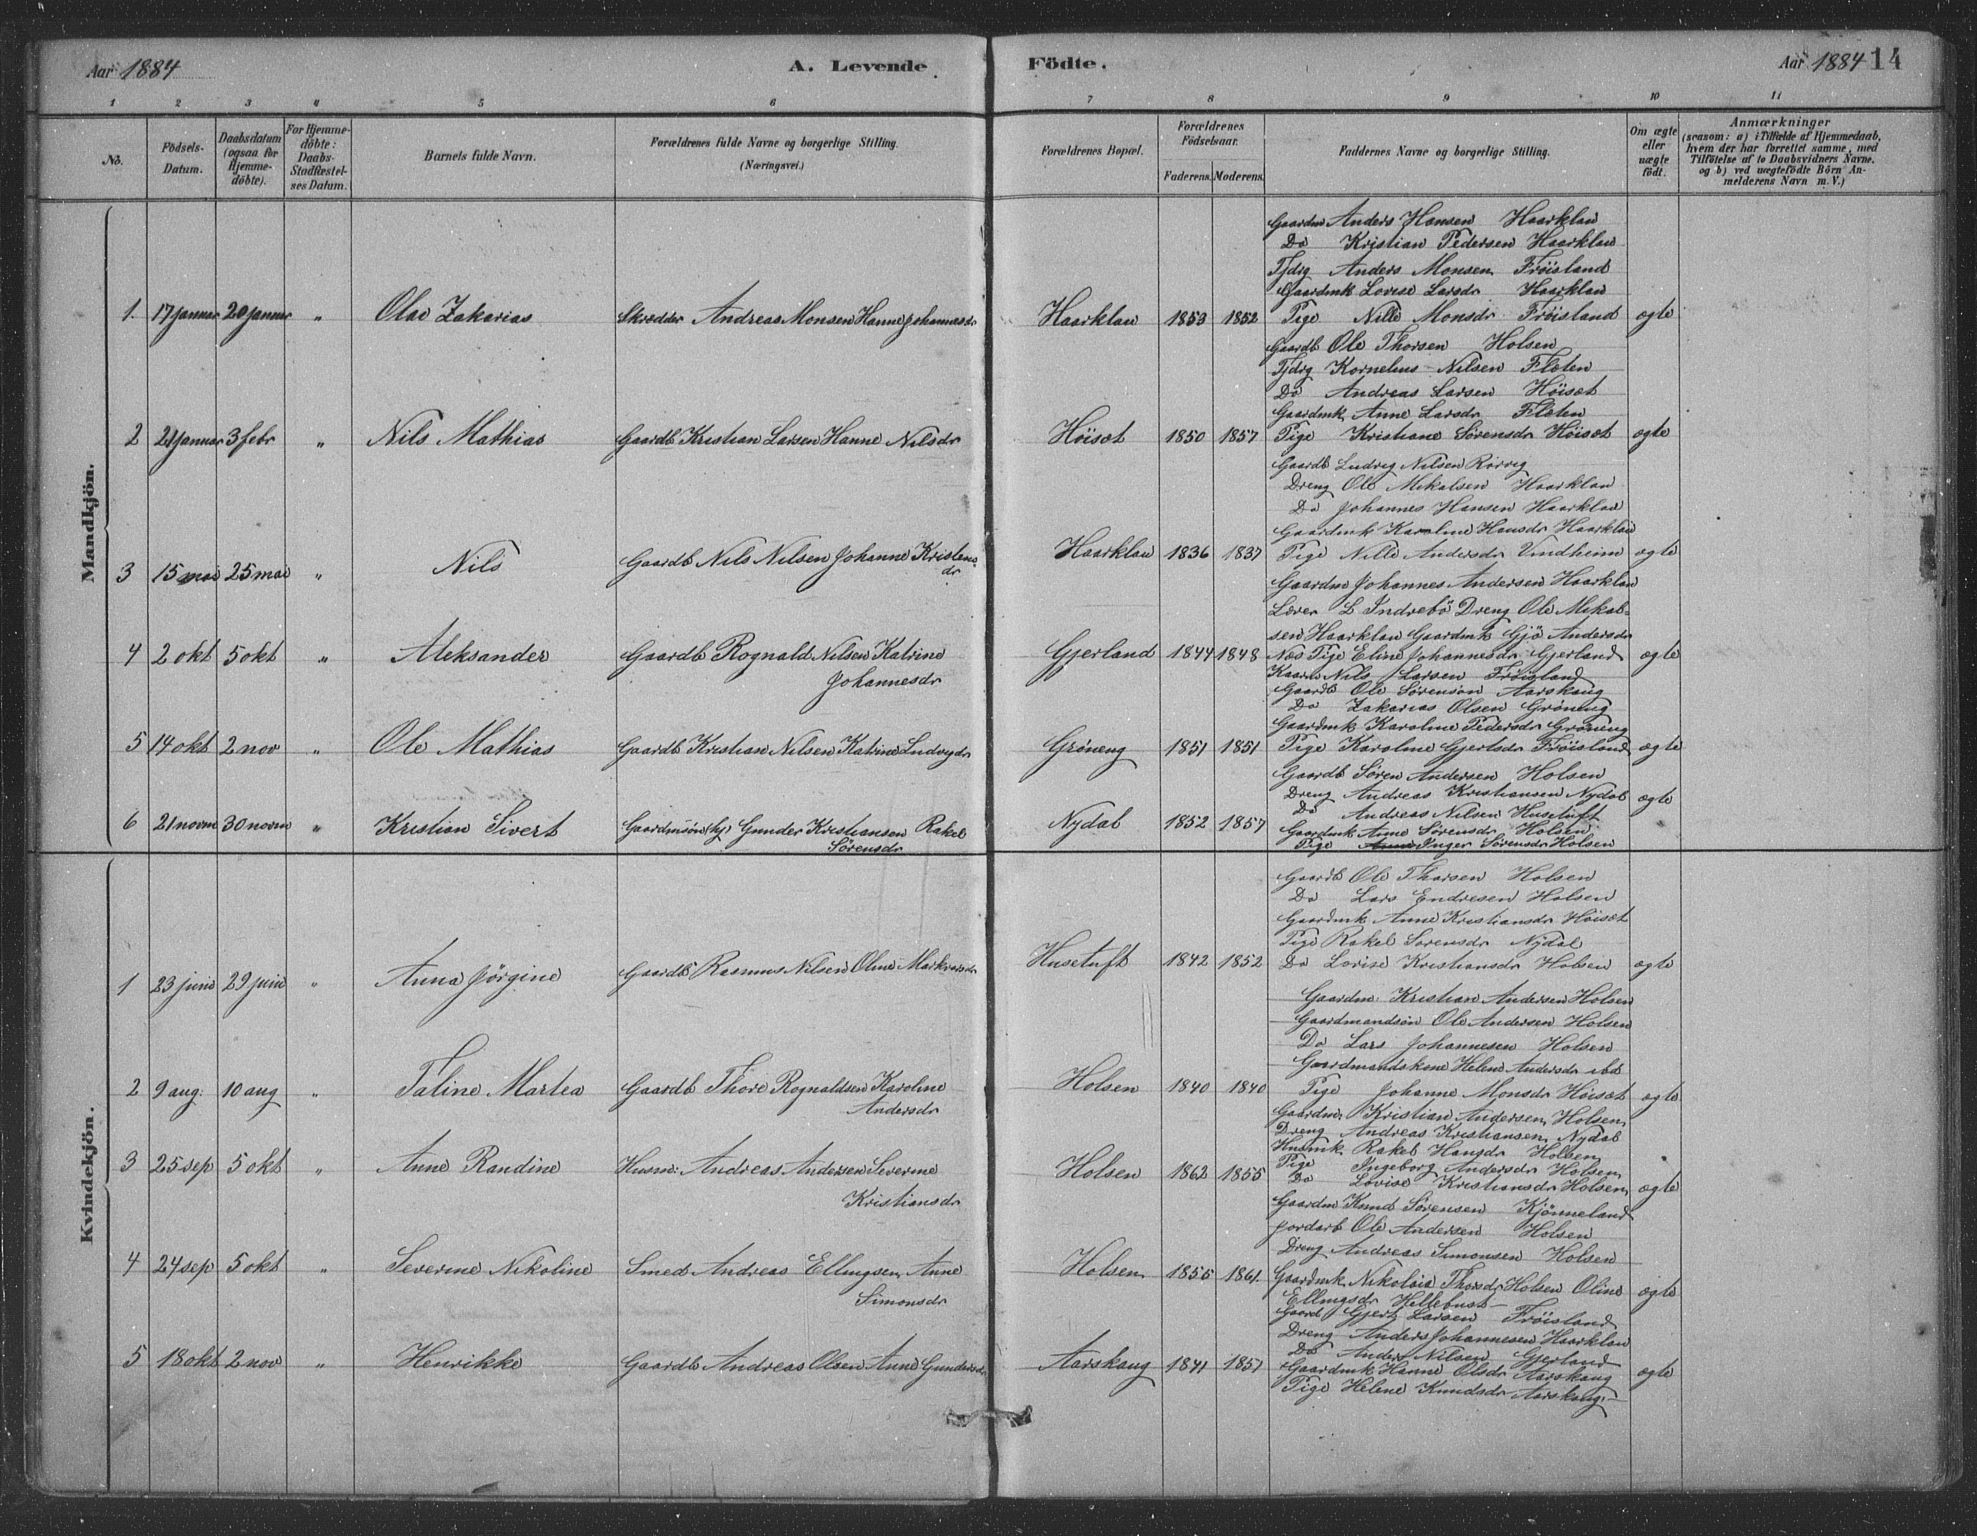 Aar 1884
A. Levende
Födte.
Aar 1884 14
1 2 3 4 5 6 7 8 9 10 11
No.
Födsels-
Datum.
Daabsdatum
(ogsaa for
Hjemme-
döbte).
For Hjemme-
döbte:
Daabs-
Stadfæstel-
ses Datum.
Barnets fulde Navn.
Forældrenes fulde Navne og borgerlige Stilling.
(Næringsvei.)
Forældrenes Bopæl.
Forældrenes
Födselsaar.
Faderens. Moderens.
Faddernes Navne og borgerlige Stilling.
Om ægte
eller
uægte
födt.
Anmærkninger
(saasom: a) i Tilfælde af Hjemmedaab,
hvem der har forrettet samme, med
Tilföielse af to Daabsvidners Navne.
og b) ved uægtefödte Börn An-
melderens Navn m. V.)
Mandkjön.
Gaardm Anders Hansen Haarklau
Do Kristian Pedersen Haarklau
Tjdrg Anders Monsen Fröisland
Gaardmk Lovise Larsdr Haarklau
1. 17 januar 20 januar " Olai Zakarias Skrædder Andreas Monsen Hanne Johannesdr Haarklau 1853 1852 Pige Nille Monsdr Fröisland ægte
Gaardb Ole Thorsen Holsen
Tjdrg Kornelius Nilsen Fleten
Do Andreas Larsen Höiset
Gaardmk Anne Larsdr Fleten
2 21 januar 3 febr " Nils Mathias Gaardb Kristian Larsen Hanne Nilsdr Höiset 1850 1857 Pige Kristiane Sörensdr Höiset ægte
Gaardb Ludvig Nilsen Rörvig
Dreng Ole Mikalsen Haarklau
Do Johannes Hansen Haarklau
Gaardmk Karoline Hansdr Haarklau
3 15 mai 25 mai " Nils Gaardb Nils Nilsen Johanne Kristens-
dr Haarklau 1836 1837 Pige Nille Andersdr Vindheim ægte
Gaardm Johannes Andersen Haarklau
Lærer L Indrebö Dreng Ole Mikal-
sen Haarklau Gaardmk Gjö Andersdr
4 2 okt 5 okt " Aleksander Gaardb Rognald Nilsen Katrine
Johannesdr Gjerland 1844 1848 Næs Pige Eline Johannesdr Gjerland ægte
Kaarb Nils Larsen Fröisland
Gaardb Ole Sörenson Aarskaug
Do Zakarias Olsen Gröneng
Gaardmk Karoline Pedersdr Gröneng
5 14 okt 2 nov " Ole Mathias Gaardb Kristian Nilsen Katrine Ludvigdr Gröneng 1851 1851 Pige Karoline Gjertsdr Fröisland ægte
Gaardb Sören Andersen Holsen
Dreng Andreas Kristiansen Nydal
Do Andreas Nilsen Husetuft
6 21 novm 30 novm " Kristian Sivert Gaardmsön (hj) Gunder Kristiansen Rakel
Sörensdr Nydal 1852 1857 Gaardmk Anne Sörensdr Holsen ægte
Pige Inger Sörensdr Holsen
Kvindekjön.
Gaardb Ole Thorsen Holsen
Do Lars Endresen Holsen
Gaardmk Anne Kristiansdr Höiset
Pige Rakel Sorensdr Nydal
1 23 juni 29 juni " Anna Jörgine Gaardb Rasmus Nilsen Oline Markusdr Husetuft 1842 1852 Do Lovise Kristiansdr Holsen ægte
Gaardm. Kristian Andersen Holsen
Gaardmandsön Ole Andersen Holsen
Do Lars Johannesen Holsen
Gaardmandskone Helene Andersdr ibd
2 9 aug. 10 aug " Taline Martea Gaardb Thore Rognaldsen Karoline
Andersdr Holsen 1840 1840 Pige Johanne Monsdr Höiset ægte
Gaardm. Kristian Andersen Holsen
Dreng Andreas Kristiansen Nydal
Husmk Rakel Hansdr Holsen
3 25 sep 5 okt " Anne Randine Husm: Andreas Andersen Severine
Kristiansdr Holsen 1862 1855 Pige Ingeborg Andersdr Holsen
Do Lovise Kristiansdr Holsen ægte
Gaardm Knud Sörensen Kjönneland
Jordarb Ole Andersen Holsen
Dreng Andreas Simonsen Holsen
4 24 sep 5 okt " Severine Nikoline Smed Andreas Ellingsen Anne
Simonsdr Holsen 1855 1861 Gaardmk Nikolaia Thorsdr Holsen Oline
Ellingsdr Hellebust ægte
Gaardb Gjert Larsen Fröisland
Dreng Anders Johannesen Haarklau
Do Anders Nilsen Gjerland
5 18 okt 2 nov " Henrikke Gaardb Andreas Olsen Anne Gundersdr Aarskaug 1841 1857 Gaardmk Hanne Olsdr Aarskaug ægte
Pige Helene Knudsdr Aarskaug